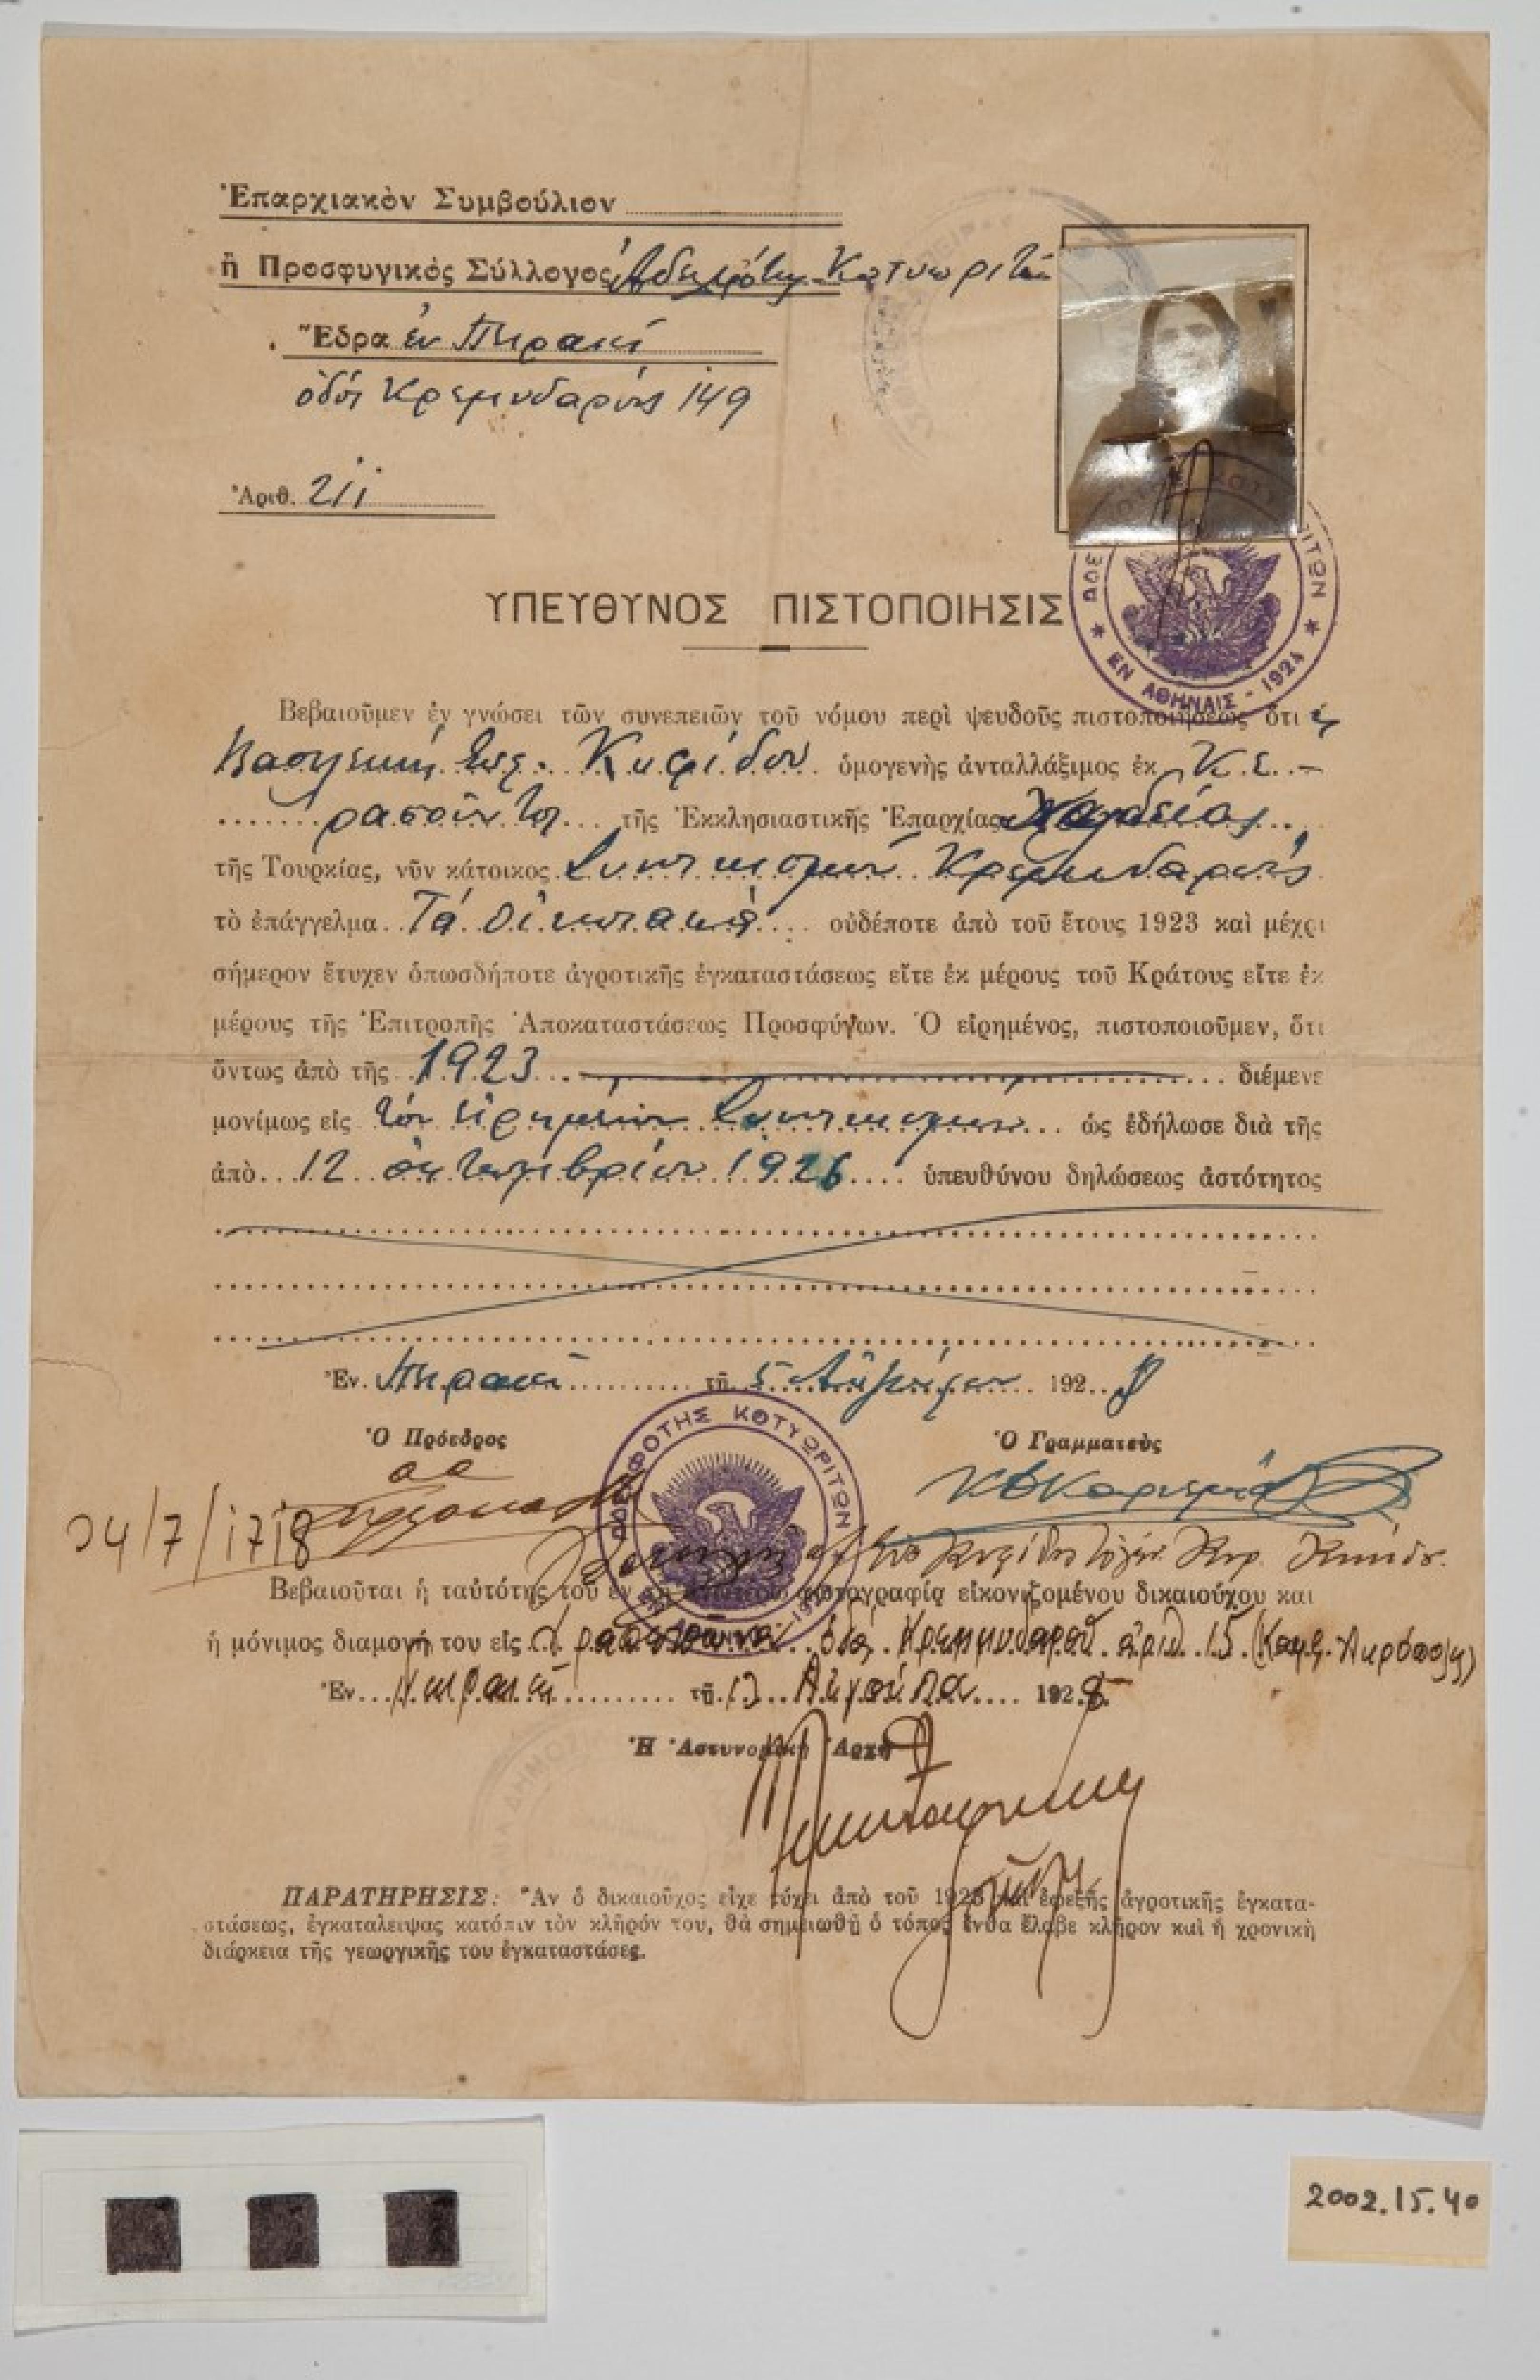 Ἐπαρχιακὸν Συμβούλιον
ἢ Προσφυγικὸς Σύλλογος Ἀδελφότης Κοτυωριτῶν
Ἕδρα ἐν Πειραιεῖ
ὁδός Κρεμυδαροῦς 149
Ἀριθ. 211
ΚΟΤΥ ΡΙΤΩΝ
* ΕΝ ΑΘΗΝΑΙΣ - 1924 *
ΥΠΕΥΘΥΝΟΣ ΠΙΣΤΟΠΟΙΗΣΙΣ
Βεβαιοῦμεν ἐν γνώσει τῶν συνεπειῶν τοῦ νόμου περὶ ψευδοῦς πιστοποιήσεως ὅτι ἡ
Βασιλικὴ Κυφίδου ὁμογενὴς ἀνταλλάξιμος ἐκ Κε-
ρασοῦντος τῆς Ἐκκλησιαστικῆς Ἐπαρχίας Χαλδείας
τῆς Τουρκίας, νῦν κάτοικος Συνοικισμοῦ Κρεμυδαροῦς
τὸ ἐπάγγελμα Τά οἰκιακά οὐδέποτε ἀπὸ τοῦ ἔτους 1923 καὶ μέχρι
σήμερον ἔτυχεν ὁπωσδήποτε ἀγροτικῆς ἐγκαταστάσεως εἴτε ἐκ μέρους τοῦ Κράτους εἴτε ἐκ
μέρους τῆς Ἐπιτροπῆς Ἀποκαταστάσεως Προσφύγων. Ὁ εἰρημένος, πιστοποιοῦμεν, ὅτι
ὄντως ἀπὸ τῆς 1923 διέμενε
μονίμως εἰς τόν εἰρημένον Συνοικισμόν ὡς ἐδήλωσε διὰ τῆς
ἀπὸ 12 ὀκτωμβρίου 1926 ὑπευθύνου δηλώσεως ἀστότητος
Ἐν Πειραιεῖ τῇ 5 Αὐγούστου 1928
Ὁ Πρόεδρος
Ὁ Γραμματεὺς
ΑΔΕΛΦΟΤΗΣ ΚΟΤΥΩΡΙΤΩΝ
Βεβαιοῦται ἡ ταὐτότης τοῦ ἐν τῇ φωτογραφίᾳ εἰκονιζομένου δικαιούχου καὶ
ἡ μόνιμος διαμονή του εἰς Δραπετσώνα ὁδός Κρεμμυδαροῦ ἀριθ. 15
Ἐν Πειραιεῖ τῇ 13 Αὐγούστου 1928
Ἡ Ἀστυνομικὴ Ἀρχὴ
ΠΑΡΑΤΗΡΗΣΙΣ: Ἂν ὁ δικαιοῦχος εἶχε τύχει ἀπὸ τοῦ 1923 καὶ ἐφεξῆς ἀγροτικῆς ἐγκατα-
στάσεως, ἐγκαταλειψας κατόπιν τὸν κλῆρόν του, θὰ σημειωθῇ ὁ τόπος ἔνθα ἔλαβε κλῆρον καὶ ἡ χρονικὴ
διάρκεια τῆς γεωργικῆς του ἐγκαταστάσες.
2002.15.40